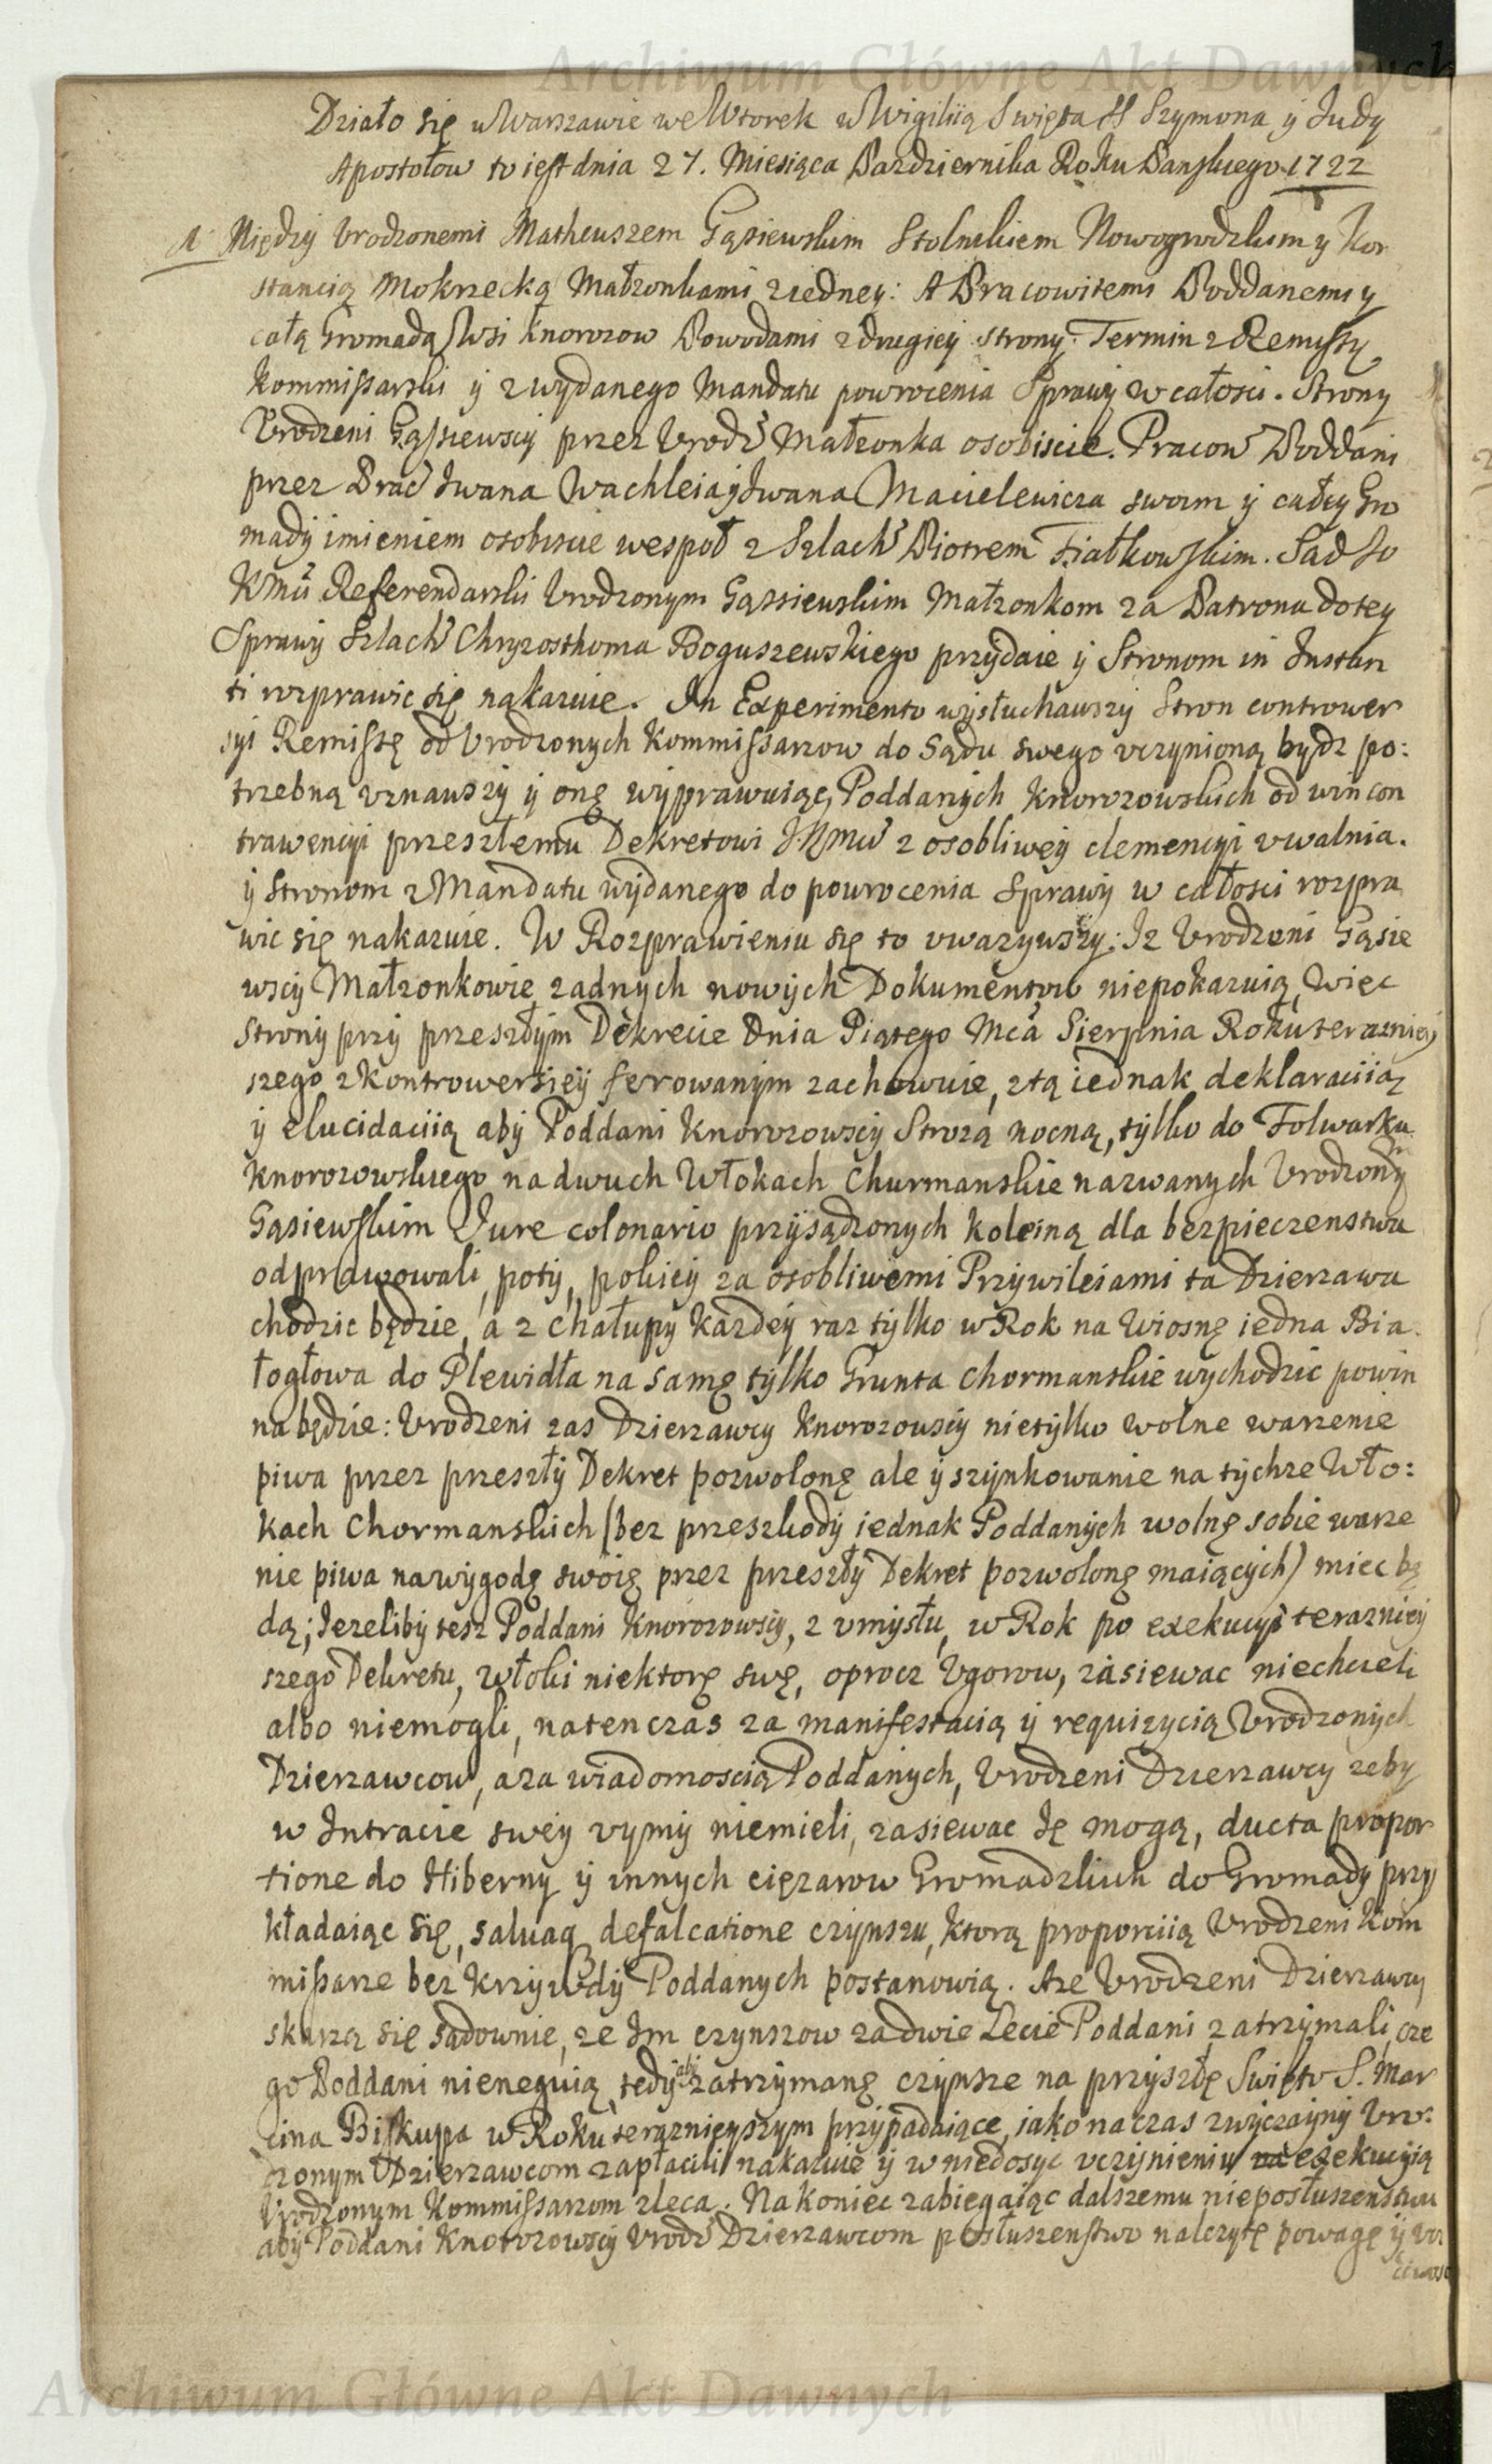 Archiwum Główne Akt Dawnych
Działo się w Warszawie we Wtorek w Wigiliią Swięta SS Szymona ÿ Judy
Apostołow to iest dnia 27. Miesiąca Pazdziernika Roku Panskiego 1722
1 Między Vrodzonemi Matheuszem Gąsiewskim Stolnikiem Nowogrodzkim y Kon
stancią Mokrzecką Małzonkami z iedney: A Pracowitemi Poddanemi y
całą Gromadą Wsi Knorozow Powodami z drugiey strony. Termin z Remissy
Kommissarski ÿ z wydanego Mandatu powrocenia Sprawÿ w całosci. Strony
Vrodzeni Gąssiewscÿ przez Vrodz Małzonka osobiscie. Pracow Poddani
przez Prac Iwana Wachleia ÿ Iwana Macielewicza swoim ÿ całey Gro
madÿ imieniem osobiscie wespoł z Szlach Piotrem Fiałkowskim. Sąd Jo
KMci Referendarski Vrodzonym Gąssiewskim Małzonkom za Patrona do tey
Sprawÿ Szlach Chryzosthoma Boguszewskiego przÿdaie ÿ Stronom in Instan
ti rozprawic się nakazuie. In Experimento wÿsłuchawszÿ Stron contrower
syi Remissę od Vrodzonych Kommissarzow do Sądu swego vczynioną bydz po:
trzebną vznawszÿ ÿ onę wÿprawuiąc, Poddanÿch Knorozowskich od win con
trawencyi przeszłemu Dekretowi JKMci z osobliweÿ clemencyi vwalnia.
ÿ Stronom z Mandatu wÿdanego do powrocenia Sprawÿ w całosci rozpra
wic się nakazuie. W Rozprawieniu się to vwazywszy: Iz Vrodzeni Gąsie
wscÿ Małzonkowie zadnych nowÿch Dokumentow niepokazuią, Więc
Stronÿ przÿ przeszłÿm Dekrecie Dnia Piątego Mca Sierpnia Roku terazniey
szego z kontrowersieÿ ferowanÿm zachowuie, z tą iednak deklaraciią
ÿ elucidaciią abÿ Poddani Knorozowscÿ Strozą nocną, tÿlko do Folwarku
Knorozowskiego na dwuch Włokach Churmanskie nazwanych Vrodzonÿ
Gąsiewskim Jure colonario przÿsądzonych koleiną dla bezpieczenstwa
odprawowali, potÿ, pokieÿ za osobliwemi Przÿwileiami ta Dzierzawa
chodzic będzie, a z Chałupÿ kazdeÿ raz tÿlko w Rok na Wiosnę iedna Bia
łogłowa do Plewidła na samę tÿlko Grunta Chormanskie wychodzic powin
na będzie: Vrodzeni zas Dzierzawcy Knorozowscÿ nietÿlko wolne warzenie
piwa przez przeszłÿ Dekret pozwolonę ale ÿ szÿnkowanie na tÿchze Wło:
kach Chormanskich (bez przeszkodÿ iednak Poddanÿch wolnę sobie warze
nie piwa na wÿgodę swoię przez przeszłÿ Dekret pozwolonę maiącÿch) miec bę
dą; Jezelibÿ tesz Poddani Knorozowscÿ, z vmÿsłu, w Rok po exekucyi terazniey
szego Dekretu, Włoki niektorę swę, oprocz Vgorow, zasiewac niechcieli
albo niemogli, natenczas za manifestacią ÿ requizycią Vrodzonÿch
Dzierzawcow, a za wiadomoscią Poddanÿch, Vrodzeni Dzierzawcy zeby
w Intracie sweÿ vymÿ niemieli, zasiewac Ię mogą, ducta propor
tione do Hibernÿ ÿ innych cięzarow Gromadzkich do Gromady przy
kładaiąc się, salvaq defalcatione czÿnszu, ktorą proporciią Vrodzeni Kom
missarze bez Krzywdÿ Poddanych postanowią. A ze Vrodzeni Dzierzawcy
skarzą się sądownie, ze Im czynszow za dwie Lecie Poddani zatrzÿmali, cze
go Poddani nieneguią, tedÿ abÿ zatrzÿmanę czÿnsze na przÿszłę Swięto S. Mar
cina Biskupa w Roku terazniejszÿm przÿpadaiące, iako na czas zwÿczaÿnÿ Vro:
dzonym Dzierzawcom zapłacili nakazuie ÿ w niedosyc vczÿnieniu exekucyią
Vrodzonym Kommissarzom zleca. Nakoniec zabiegaiąc dalszemu nieposłuszenstwu
abÿ Poddani Knorozowscÿ Vrodz Dzierzawcom posłuszenstwo nalezytę powagę ÿ vcz
ciwosc
Archiwum Główne Akt Dawnych